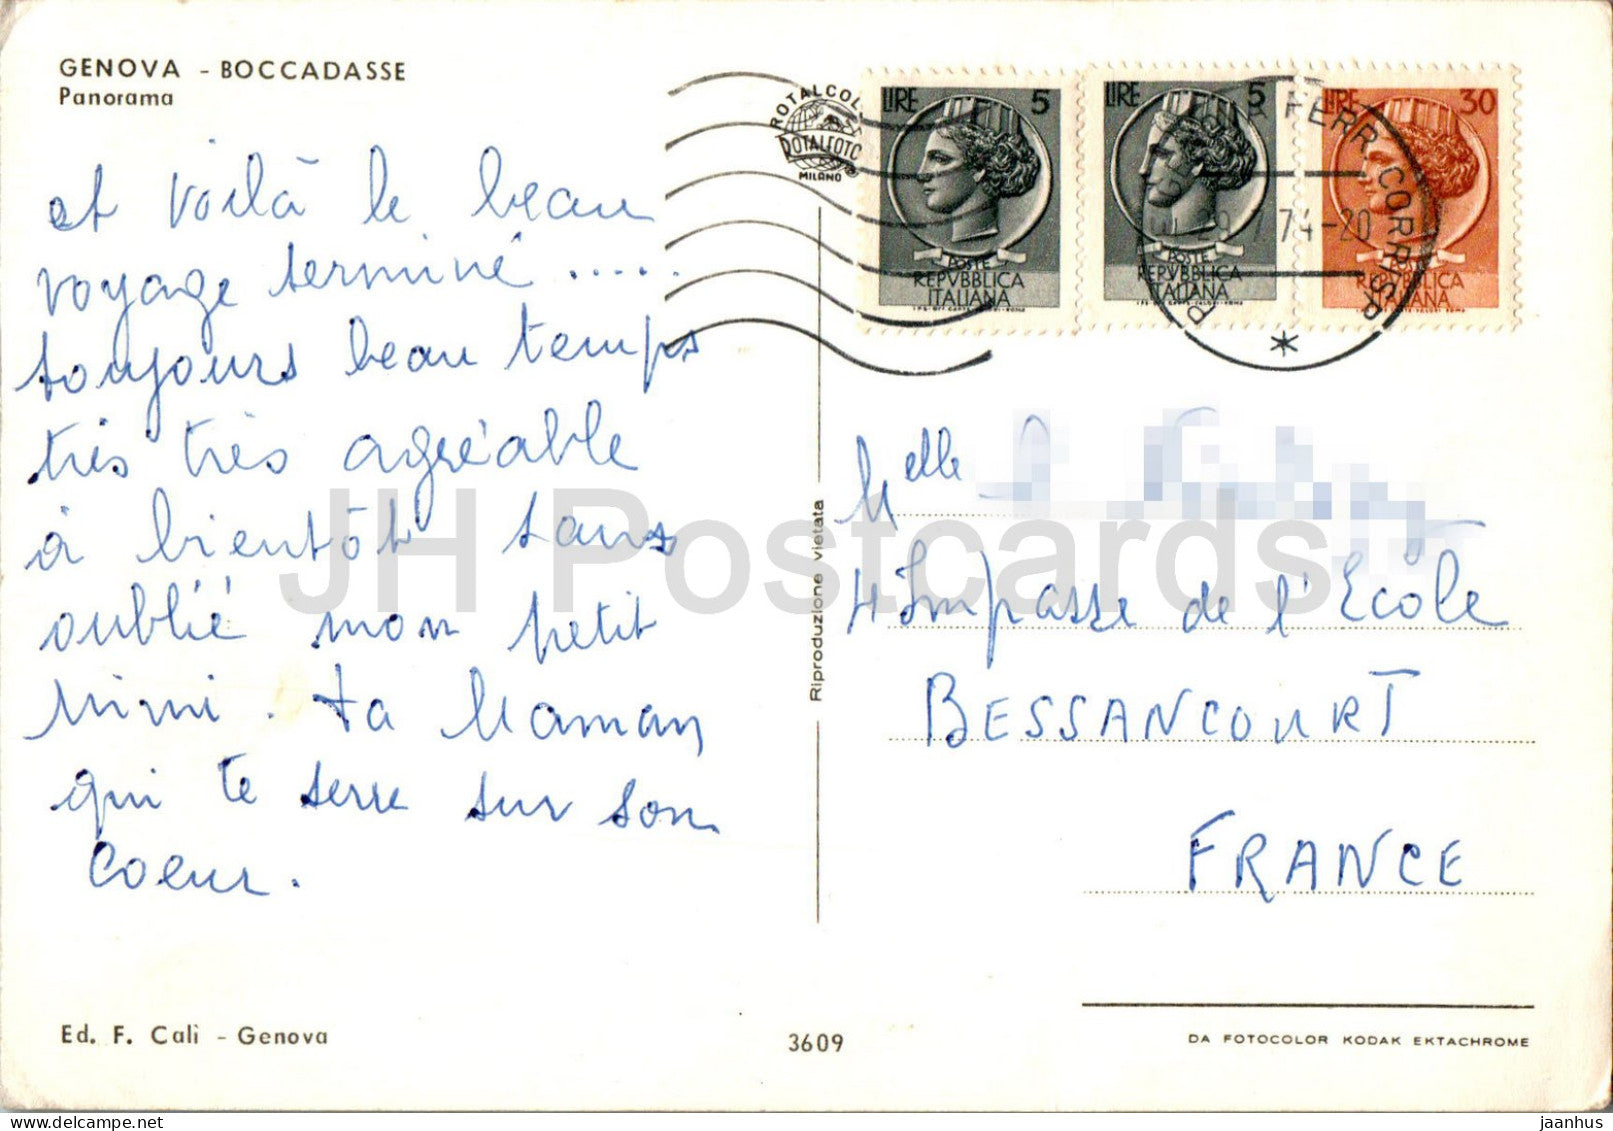 GENOVA - BOCCADASSE
Panorama
et voilà le beau
voyage terminé .....
toujours beau temps
très très agréable
à bientôt sans
oublié mon petit
Mimi. ta Maman
qui te serre sur son
coeur.
Ed. F. Calì - Genova
3609
Riproduzione vietata
ROTALCOLOR
ROTALFOTO
MILANO
LIRE 5
POSTE
REPVBBLICA
ITALIANA
I.P.S.-OFF. CARTE-VALORI-ROMA
LIRE 5
POSTE
REPVBBLICA
ITALIANA
I.P.S.-OFF. CARTE-VALORI-ROMA
LIRE 30
POSTE
REPVBBLICA
ITALIANA
FERR. CORRISP.
74-20
Melle
4 Impasse de l'Ecole
BESSANCOURT
FRANCE
DA FOTOCOLOR KODAK EKTACHROME
JH Postcards
jaanhus